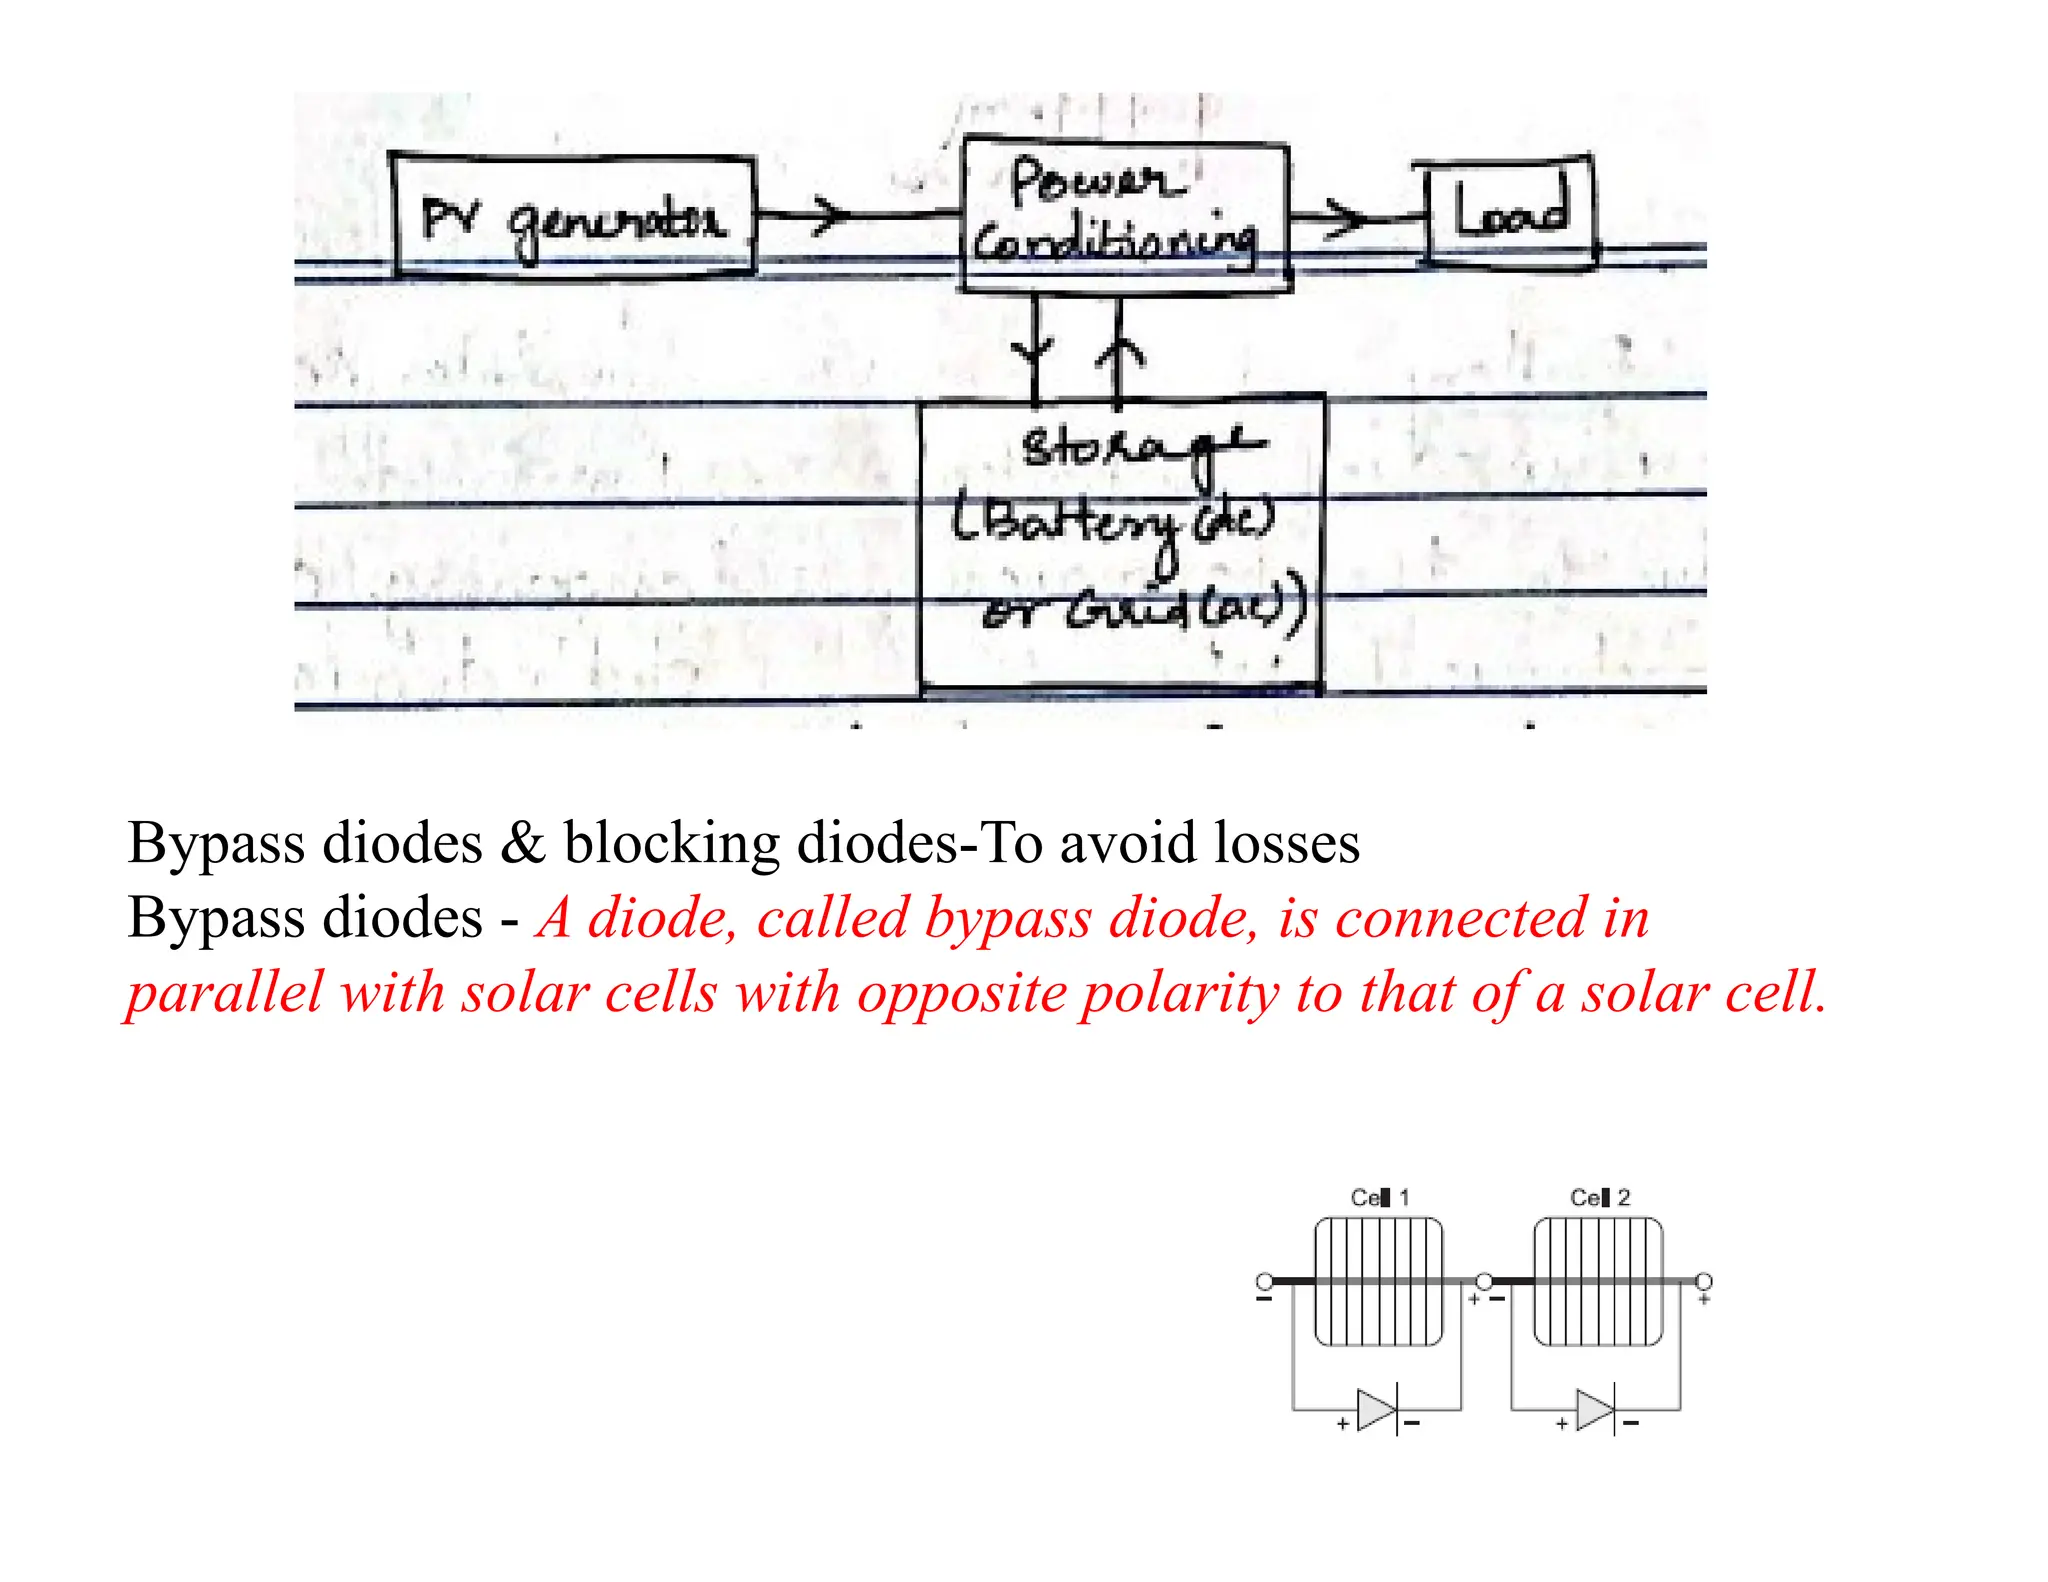 PV generator
Power
Conditioning
Load
Storage
(Battery (dc)
or Grid (ac))
Bypass diodes & blocking diodes-To avoid losses
Bypass diodes - A diode, called bypass diode, is connected in
parallel with solar cells with opposite polarity to that of a solar cell.
Cell 1
Cell 2
− + − +
+ − + −